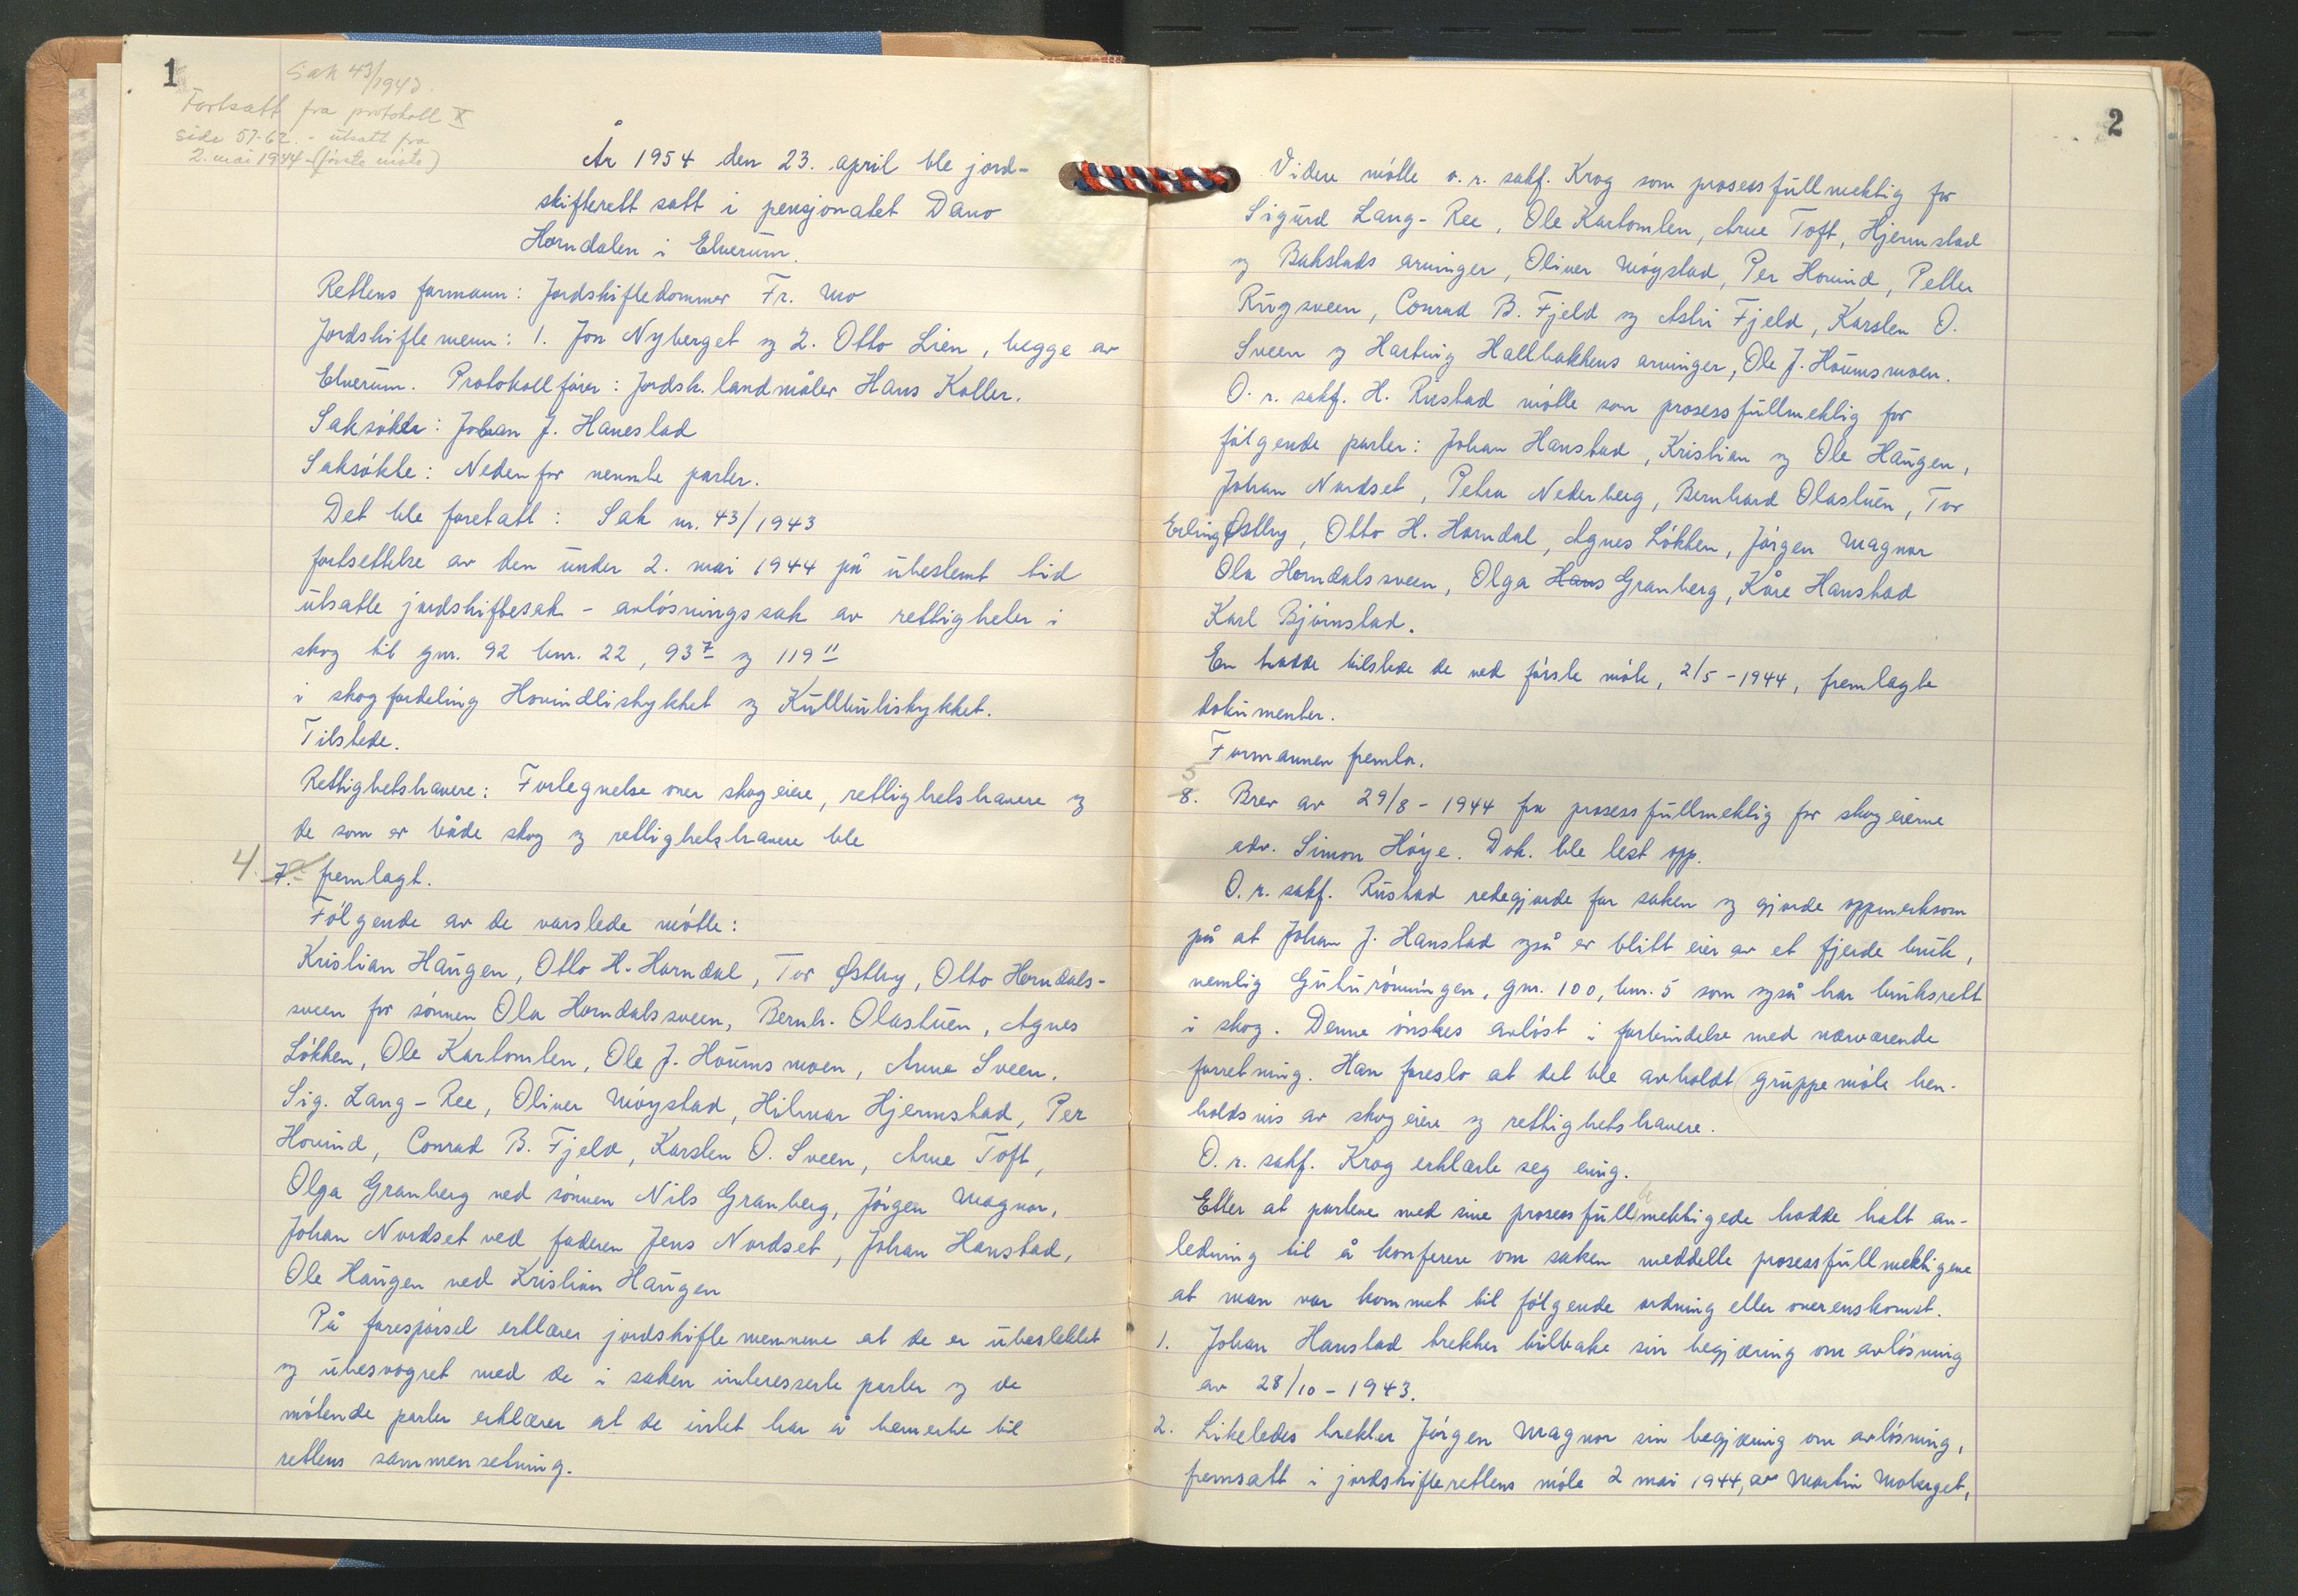 1
Sak 43/1943.
Fortsatt fra protokoll X
side 57-62. - utsatt fra
2. mai 1944 (første møte)
År 1954 den 23. april ble jord-
skifterett satt i pensjonatet Dano
Horndalen i Elverum.
Rettens formann: Jordskiftedommer Fr. Mo
Jordskiftemenn: 1. Jon Nyberget og 2. Otto Lien, begge av
Elverum. Protokollfører: Jordsk. landmåler Hans Koller.
Saksøker: Johan J. Hanestad
Saksøkte: Nedenfor nevnte parter.
Det ble foretatt: Sak nr. 43/1943
fortsettelse av den under 2. mai 1944 på ubestemt tid
utsatte jordskiftesak - avløsningssak av rettigheter i
skog til gnr. 92 bnr. 22, 93 7 og 119 11
i skogfordeling Hovindlistykket og Kulltulistykket.
Tilstede.
Rettighetshavere: Fortegnelse over skogeiere, rettighetshavere og
de som er både skog og rettighetshavere ble
4. 7. fremlagt.
Følgende av de varslede møtte:
Kristian Haugen, Otto H. Horndal, Tor Østby, Otto Horndals-
sveen for sønnen Ola Horndalssveen, Bernh. Olastuen, Agnes
Løkken, Ole Kartomten, Ole J. Houmsmoen, Arne Sveen.
Sig. Lang-Ree, Oliver Møystad, Hilmar Hjermstad, Per
Hovind, Conrad B. Fjeld, Karsten O. Sveen, Arne Toft,
Olga Granberg ved sønnen Nils Granberg, Jørgen Magnor,
Johan Nordset ved faderen Jens Nordset, Johan Hanstad,
Ole Haugen ved Kristian Haugen
På forespørsel erklærer jordskiftemennene at de er ubeslektet
og ubesvogret med de i saken interesserte parter og de
møtende parter erklærer at de intet har å bemerke til
rettens sammensetning.
2
Videre møtte o.r. sakf. Krog som prosessfullmektig for
Sigurd Lang-Ree, Ole Kartomten, Arne Toft, Hjermstad
og Bakstads arvinger, Oliver Møystad, Per Hovind, Petter
Rugsveen, Conrad B. Fjeld og Asbi Fjeld, Karsten O.
Sveen og Hartvig Hallbakkens arvinger, Ole J. Houmsmoen.
O.r. sakf. H. Rustad møtte som prosessfullmektig for
følgende parter: Johan Hanstad, Kristian og Ole Haugen,
Johan Nordset, Petra Nederberg, Bernhard Olastuen, Tor
Erling Østby, Otto H. Horndal, Agnes Løkken, Jørgen Magnor
Ola Horndalssveen, Olga Hans Granberg, Kåre Hanstad
Karl Bjørnstad.
En hadde tilstede de ved første møte, 2/5-1944, fremlagte
dokumenter.
Formannen fremla.
5
8. Brev av 29/8-1944 fra prosessfullmektig for skogeierne
adv. Simon Høye. Dok. ble lest opp.
O.r. sakf. Rustad redegjorde for saken og gjorde oppmerksom
på at Johan J. Hanstad også er blitt eier av et fjerde bruk,
nemlig Guturønningen, gnr. 100, bnr. 5 som også har bruksrett
i skog. Denne ønskes avløst i forbindelse med nærværende
forretning. Han foreslo at det ble avholdt gruppemøte hen-
holdsvis av skogeiere og rettighetshavere.
O.r. sakf. Krog erklærte seg enig.
Etter at partene med sine prosessfullmektigede hadde hatt an-
ledning til å konferere om saken meddelte prosessfullmektigene
at man var kommet til følgende ordning eller overenskomst.
1. Johan Hanstad trekker tilbake sin begjæring om avløsning
av 28/10-1943.
2. Likeledes trekker Jørgen Magnor sin begjæring om avløsning,
fremsatt i jordskifterettens møte 2 mai 1944, av Martin Moberget,